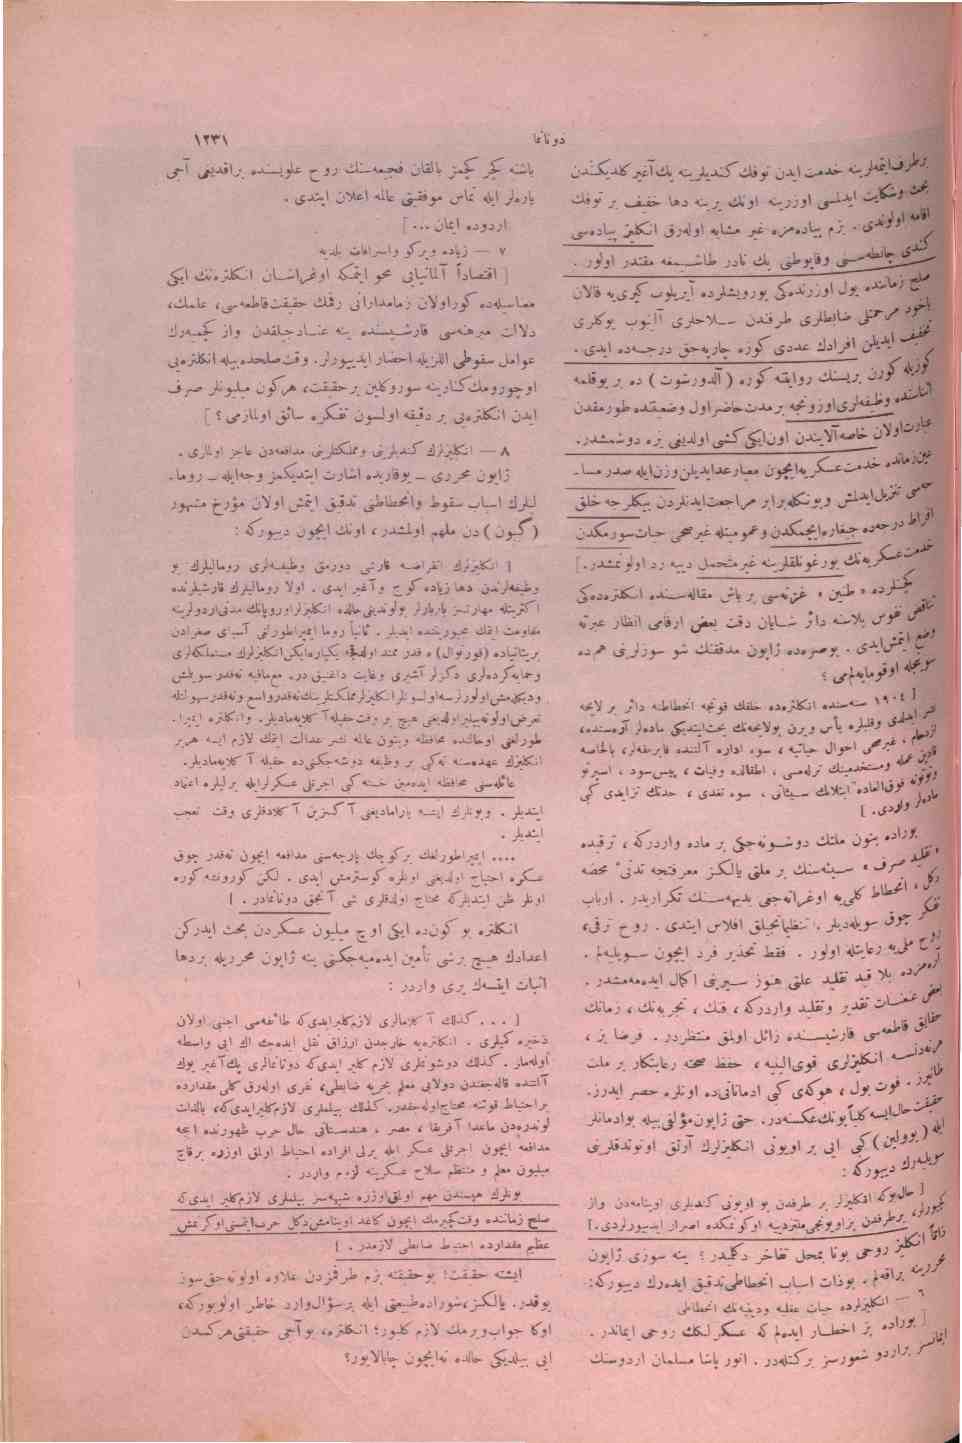 دونانما
١٢٣١
برطرف ایتمه‌لرینه خدمت ایدن توفنك كندیلرینه پك آغیر كلدیكندن
بحث وشكایت ایدلسی اوزرینه اونك یرینه دها خفیف بر توفنك
اقامه اولوندی. بزم پیاده‌مزه غیر مشابه اوله‌رق انكلیز پیاده‌سی
كندی چانطه‌سنی وقاپوطنی پك نادر طاشیمغه مقتدر اولور.
صلح زماننده یول اوزرنده‌كی یورویشلرده آیریلوب كیری‌یه قالان
یاخود مرحمتلی ضابطلری طرفندن سلاحلری آلینوب یوكلری
تخفیف ایدیلن افرادك عددی كوره چارپه‌جق درجه‌ده ایدی.
كوزیله كورن بریسنك روایتنه كوره (آلدورشوت) ده بر یوقلمه
اثناسنده وظیفه‌لری اوزونجه بر مدت حاضر اول وضعیتنده طورمقدن
عبارت اولان خاصه آلایندن اون ایكی كشی اولدیغی یره دوشمشدر.
عین زمانده خدمت عسكریه ایچون معیار عد ایدیلن وزن ایله صدر مسا-
حه‌سی تنزیل ایدلمش وبونكله برابر مراجعت ایدنلردن بیكلرجه خلق
افراط درجه‌ده جیغاره ایچمكدن وعمومیتله غیر صحی حیات سورمكدن
خدمت عسكریه‌نك یورغونلقلرینه غیر متحمل دییه رد اولونمشدر.]
كچنلرده «طنین» غزته‌سی بر باش مقاله‌سنده انكلتره‌ده‌كی
تناقص نفوس بلاسنه دائر شایان دقت بعض ارقامی انظار عبرته
وضع ایتمش ایدی. بوصره‌ده ژاپون مدققنك شو سوزلرینی هم‌ده
سویجله اوقومایه‌لم‌می؟
[١٩٠٤ سنه‌سنده انكلتره‌ده خلقك قوتجه انحطاطنه دائر بر لایحه
نشر ایدلدی وقلبلره یأس ویرن بولایحه‌نك بحث ایتدیكی ماده‌لر آره‌سنده،
ازدحام، غیر صحی احوال حیاتیه، سوء اداره آلتنده فابریقه‌لر، بالخاصه
قادین عمله ومستخدمینك تره‌سی، اطفالده وفیات، پیس‌سود، اسپرتو
وتوتونه فوق‌العاده ابتلانك سیئاتی، سوء تغدی، جدنك تزایدی كبی
ماده‌لر واردی.]
بوراده بتون ملتك دوشونه‌جكی بر ماده واردركه، ترقیده
«تقلید صرف» سیئه‌سنك بر ملتی یالكز معرفتجه تدنی‌ٔ محضه
دكل، انحطاط كلی‌یه اوغراته‌جغی بدیهه‌سنك تكراریدر. ارباب
تفكر چوق سویله‌دیلر. تنظیماتجیلق افلاس ایتدی. روح ترقی،
روح ملی‌یه رعایتله اولور. فقط تحذیر فرد ایچون سویلیه‌لم.
آره‌مزده بلا قید تقلید علتی هنوز سیرینی اكمال ایده‌مه‌مشدر.
بعض عنعنات تقدیر وتقلید واردركه، فنك، تجربه‌نك، زمانك
حقایق قاطعه‌سی قارشیسنده زائل اولمق منتظردر. فرضا بز،
هرنه‌دنسه انكلیزلری قوی‌البنیه، حفظ صحته رعایتكار بر ملت
طانیرز. فوت بول، هوكه‌ی كبی ادمانلرده اونلره حصر ایدرز.
حقیقت حال ایسه كلیاً بونك عكسنه‌در. حتی ژاپون مؤلفی بیله بو ادمانلر
ایله (بووولین) كبی ایی بر اویونی انكلیزلرك آرتق اونوتدقلرینی
سویلیه‌رك دییوركه:
[حال‌بوكه انكلیزلر بر طرفدن بو اویونی كندیلری اوینامه‌دن واز
كچیورلر، بر طرفدن بر اویونجی ملتز دییه اوكونمكده اصرار ایدییورلردی.]
ذاتاً انكلیز روحی بونا بمحل تفاخر دكلمیدر؟ ینه سوزی ژاپون
محررینه براقه‌لم. بوذات اسباب انحطاطی تدقیق ایده‌رك دییوركه:
٦ — انكلیزلرده حیات عقلیه ودینیه‌نك انحطاطی
[بوراده بز اخطار ایده‌لم كه عسكرلكك روحی ایماندر.
ایمانسز بر اردو شعورسز بر كتله‌در. انور پاشا مسلمان اردوسنك
باشنه كچر كچمز بالقان فجیعه‌سنك روح علویسنده براقدیغی آجی
یاره‌لر ایله تماس موفقیتی عالمه اعلان ایتدی.
اردوده ایمان...]
٧ — زیاده ویركو واسرافات بلدیه
[اقتصاداً آلمانیایی محو ایتمكه اوغراشان انكلتره‌نك ایكی
معامله‌ده كور اولان زمامدارانی رقمك حقیقت قاطعه‌سی، علمك،
دلالت مبرهنه‌سی قارشیسنده ینه عنادجیلقدن واز كچمیه‌رك
عوامل سقوطی اللریله احضار ایدییورلر. وقت صلحده بیله انكلتره‌یی
اوچورومك كنارینه سوروكلین بر حقیقت، هركون میلیونلر صرف
ایدن انكلتره‌یی بر دقیقه اولسون تفكره سائق اولمازمی؟]
٨ — انكلیزلرك كندیلرینی ومملكتلرینی مدافعه‌دن عاجز اولملری.
ژاپون محرری — یوقاریده اشارت ایتدیكمز وجه‌ایله — روما-
لیلرك اسباب سقوط وانحطاطنی تدقیق ایتمش اولان مؤرخ مشهور
(گیبون) دن ملهم اولمشدر، اونك ایچون دییوركه:
[انكلیزلرك انقراضه قارشی دورمق وظیفه‌لری رومالیلرك بو
وظیفه‌لرندن دها زیاده كوج وآغیر ایدی. اولا رومالیلرك قارشیلرنده
اكثریتله مهارتسز باربارلر بولوندیغی حالده انكلیزلر اوروپانك مدنی اردولرینه
مقاومت ایتمك مجبوریتنده ایدیلر. ثانیاً روما ایمپراطورلغی آسیای صغرادن
بریتانیاده (قورنوال) ه قدر ممتد اولدیغی یكپاره ایكن انكلیزلرك مستملكه‌لری
وحمایه‌كرده‌لری دكزلر آشیری وغایت داغنیق در. مع‌مافیه نه‌قدر سویلنش
ودیكله‌نمش اولورلرسه اولسونلر انكلیزلر مملكتلرینك نه‌قدر واسع ونه‌قدر سهولتله
تعرض اولونه‌بیلیر اولدیغنی هیچ بر وقت حقیله آكلایه‌مادیلر. وانكلتره ایمپرا-
طورلغی اوحالنده محافظه وبتون عالمه نشر عدالت ایتمك لازم ایسه هربر
انكلیزك عهده‌سنه نه‌كبی بر وظیفه دوشه‌جكنی‌ده حقیله آكلایه‌مادیلر.
عائله‌سنی محافظه ایده‌مین خسته كبی اجرتلی عسكرلر ایله بریلیره اعتماد
ایتدیلر. وبونلرك ایشه یارامادیغنی آكسزین آكلادقلری وقت تعجب
ایتدیلر.
.... ایمپراطورلغك بر كوچك پارچه‌سنی مدافعه ایچون نه‌قدر چوق
عسكره احتیاج اولدیغنی اونلره كوسترمش ایدی. لكن كورونشه كوره
اونلر ظن ایتدیلركه محتاج اولدقلری شی آنجق دونانمادر.]
انكلتره بو كون‌ده ایكی اوچ میلیون عسكردن بحث ایدركن
اعدادك هیچ برشی تأمین ایده‌میه‌جكنی ینه ژاپون محرریله بردها
اثبات ایتسه‌ك یری واردر:
[... كذلك آكلامالری لازم كلیر ایدی‌كه طائفه‌سی اجنبی اولان
ذخیره كمیلری. انكلتره‌یه خارجدن ارزاق نقل ایده‌جك اك ایی واسطه
اوله‌ماز. كذلك دوشونملری لازم كلیر ایدی‌كه دونانمالری پك آغیر یوك
آلتنده قاله‌جغندن دولایی معلم بحریه ضابطی، نفری اوله‌رق كلی مقدارده
بر احتیاط قوتنه محتاج اوله‌جقدر. كذلك بیلملری لازم كلیر ایدی‌كه، بالذات
لوندره‌دن ماعدا آفریقا، مصر، هندستانی حال حرب ظهورنده ایجه
مدافعه ایچون اجرتلی عسكر ایله یرلی افراده احتیاط اولمق اوزره برقاچ
میلیون معلم و منتظم سلاح عسكرینه لزوم واردر.
بونلرك هپسندن مهم اولمق اوزره شبهه‌سز بیلملری لازم كلیر ایدی‌كه
صلح زماننده وقت كچیرمك ایچون كاغد اوینامش دكل حرب ایتمسنی اوكرنمش
عظیم مقدارده احتیاط ضابطی لازمدر.]
ایشته حقیقت! بوحقیقته بزم طرفمزدن علاوه اولونه‌جق سوز
یوقدر. یالكز، شوراده طبیعی ایله بر سؤال وارد خاطر اولویوركه،
اوكا جواب ویرمك لازم كلیور؛ انكلتره، بو آجی حقیقتی هركسدن
ایی بیلدیكی حالده نه‌ایچون چابالایور؟